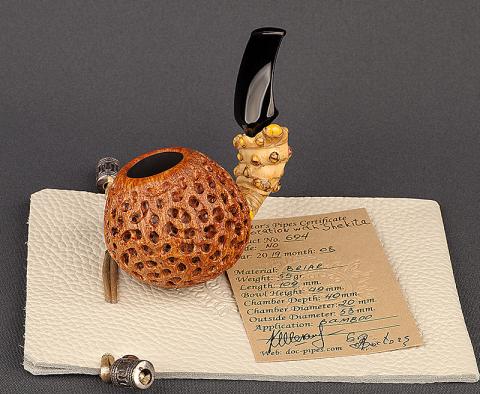 tor's Pipes Certificate
oration with Shekita
uct No. 604
de: NO
ar: 2019 month: 08
Material: BRIAR
Weight: 55 gr
Length: 109 mm.
Bowl Height: 49 mm.
Chamber Depth: 40 mm.
Chamber Diameter: 20 mm.
Outside Diameter: 58 mm.
Application: BAMBOO
Web: doc-pipes.com